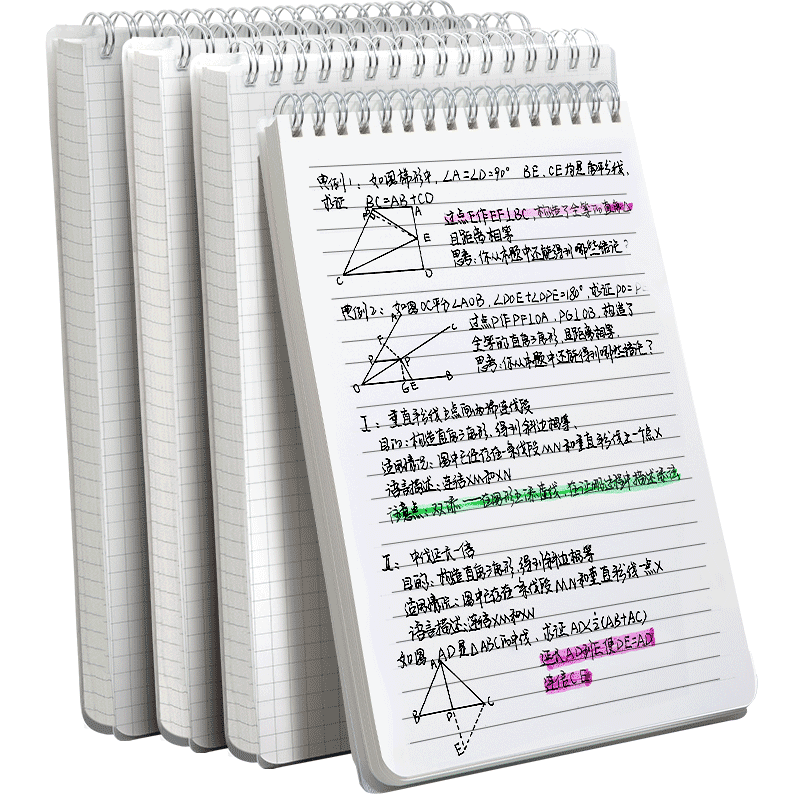 典例1：如图梯形中，∠A=∠D=90° BE、CE均是角平分线，
求证 BC=AB+CD
A
E
C
D
过点E作EF⊥BC，构造了全等的直角
且距离相等
思考：你从本题中还能得到哪些结论？
典例2：如图OC平分∠AOB，∠DOE+∠DPE=180°，求证PD=P
A
C
E
P
P
O
G E
B
过点P作PF⊥OA，PG⊥OB，构造了
全等的直角三角形，且距离相等
思考：你从本题中还能得到哪些结论？
I：垂直平分线上点向两端连线段
目的：构造直角三角形，得到斜边相等、
适用情况：图中已经存在一条线段MN和垂直平分线上一个点X
语言描述：连结XM和XN
注意点：双添——在图形上添直线，在证明过程中描述添法
II：中线延长一倍
目的：构造直角三角形，得到斜边相等
适用情况：图中已存在一条线段MN和垂直平分线一点X
语言描述：连结XM和XN
如图 AD是△ABC的中线，求证AD<½(AB+AC)
A
B
D
C
E
延长AD到E使DE=AD
连结CE